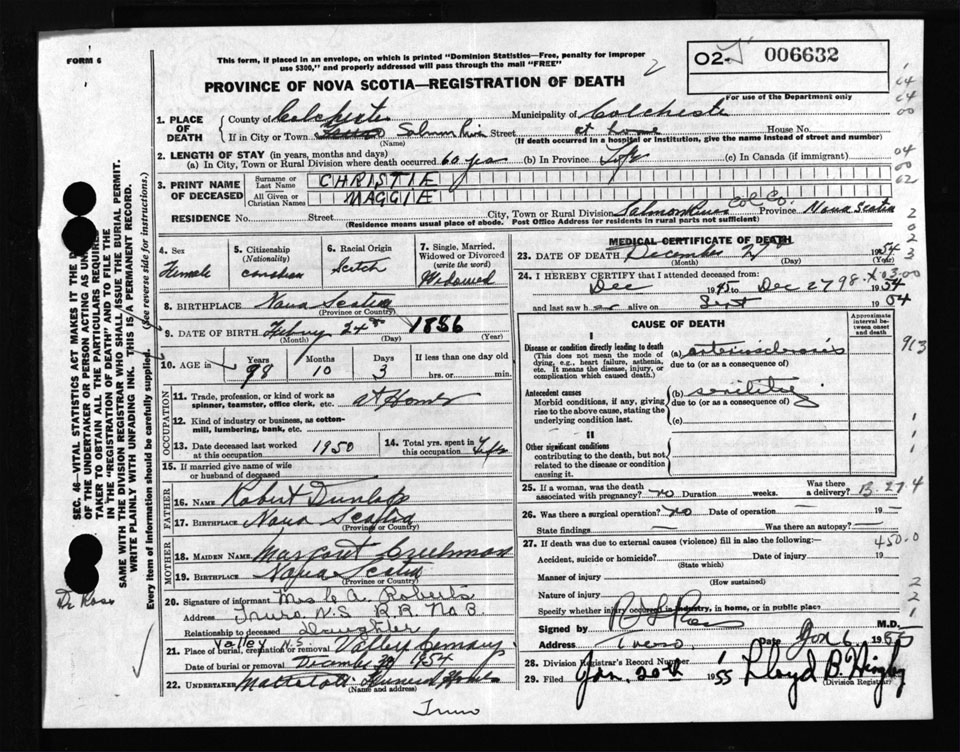 FORM 6
This form, if placed in an envelope, on which is printed "Dominion Statistics—Free, penalty for improper
use $300," and properly addressed will pass through the mail "FREE"
2
02- 006632
For use of the Department only
PROVINCE OF NOVA SCOTIA—REGISTRATION OF DEATH
1. PLACE OF DEATH
County of Colchester Municipality of Colchester
If in City or Town Salmon River Street at home House No.
(Name) (If death occurred in a hospital or institution, give the name instead of street and number)
2. LENGTH OF STAY (in years, months and days)
(a) In City, Town or Rural Division where death occurred 60 yrs (b) In Province Life (c) In Canada (if immigrant)
3. PRINT NAME OF DECEASED
Surname or Last Name CHRISTIE
All Given or Christian Names MAGGIE
RESIDENCE No. Street City, Town or Rural Division Salmon River Col Co. Province Nova Scotia
(Residence means usual place of abode. Post Office Address for residents in rural parts not sufficient)
4. Sex Female
5. Citizenship (Nationality) Canadian
6. Racial Origin Scotch
7. Single, Married, Widowed or Divorced (write the word) Widowed
8. BIRTHPLACE Nova Scotia
(Province or Country)
9. DATE OF BIRTH 24 1856
(Month) (Day) (Year)
10. AGE in Years Months Days If less than one day old
98 10 3 hrs. or min.
OCCUPATION
11. Trade, profession, or kind of work as spinner, teamster, office clerk, etc. at Home
12. Kind of industry or business, as cotton-mill, lumbering, bank, etc.
13. Date deceased last worked at this occupation 1950
14. Total yrs. spent in this occupation Life
15. If married give name of wife or husband of deceased
FATHER
16. NAME Robert Dunlap
17. BIRTHPLACE Nova Scotia
(Province or Country)
MOTHER
18. MAIDEN NAME Margaret Creelman
19. BIRTHPLACE Nova Scotia
(Province or Country)
20. Signature of informant Mrs A. Roberts
Address Truro N.S R R No 3.
Relationship to deceased Daughter
21. Place of burial, cremation or removal Valley N.S. Valley Cemetery
Date of burial or removal December 30 1954
22. Undertaker Funeral Home
(Name and address)
Truro
MEDICAL CERTIFICATE OF DEATH
23. DATE OF DEATH December 27 1954
(Month) (Day) (Year)
24. I HEREBY CERTIFY that I attended deceased from:
Dec 19 to Dec 27 1954
and last saw h alive on Sept 1954
CAUSE OF DEATH
Approximate interval between onset and death
I
Disease or condition directly leading to death
(This does not mean the mode of dying, e.g., heart failure, asthenia, etc. It means the disease, injury, or complication which caused death.)
(a) arteriosclerosis
due to (or as a consequence of)
Antecedent causes
Morbid conditions, if any, giving rise to the above cause, stating the underlying condition last.
(b) senility
due to (or as a consequence of)
(c)
II
Other significant conditions
contributing to the death, but not related to the disease or condition causing it.
25. If a woman, was the death associated with pregnancy? no Duration weeks. Was there a delivery?
26. Was there a surgical operation? no Date of operation — 19 —
State findings — Was there an autopsy? —
27. If death was due to external causes (violence) fill in also the following:—
Accident, suicide or homicide? Date of injury 19
(State which)
Manner of injury
(How sustained)
Nature of injury
Specify whether injury occurred in industry, in home, or in public place
Signed by M.D.
Address Truro Date Jan 6 1955
28. Division Registrar's Record Number
29. Filed Jan. 20th 1955 Lloyd B.
(Division Registrar)
B 27 4
450.0
913
SEC. 46—VITAL STATISTICS ACT MAKES IT THE
OF THE UNDERTAKER OR PERSON ACTING AS
TAKER TO OBTAIN ALL THE PARTICULARS REQUIRE
IN THE "REGISTRATION OF DEATH" AND TO FILE THE
SAME WITH THE DIVISION REGISTRAR WHO SHALL ISSUE THE BURIAL PERMIT.
WRITE PLAINLY WITH UNFADING INK. THIS IS A PERMANENT RECORD.
Every item of information should be carefully supplied. (See reverse side for instructions.)
Dr Ross